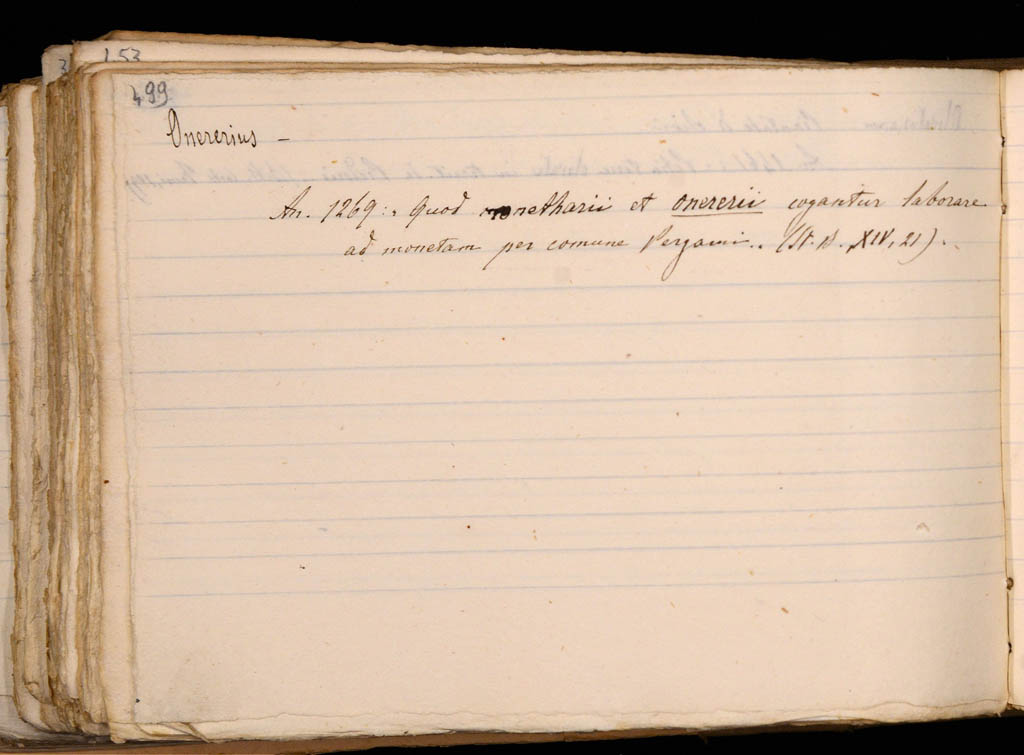 153
499
Onererius -
An. 1269: Quod monetharii et onererii cogantur laborare
ad monetam per comune Pergami.. (St. B. XIV, 21).